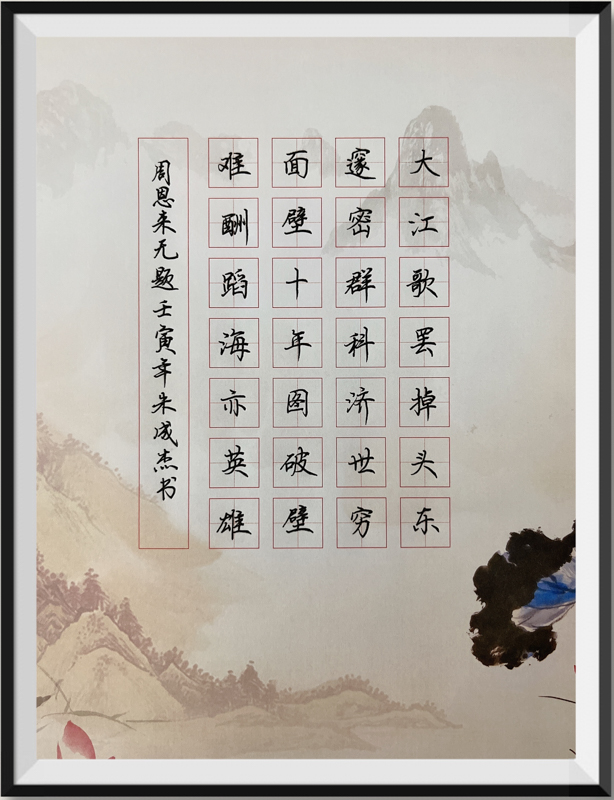 大江歌罢掉头东
邃密群科济世穷
面壁十年图破壁
难酬蹈海亦英雄
周恩来无题壬寅年朱成杰书